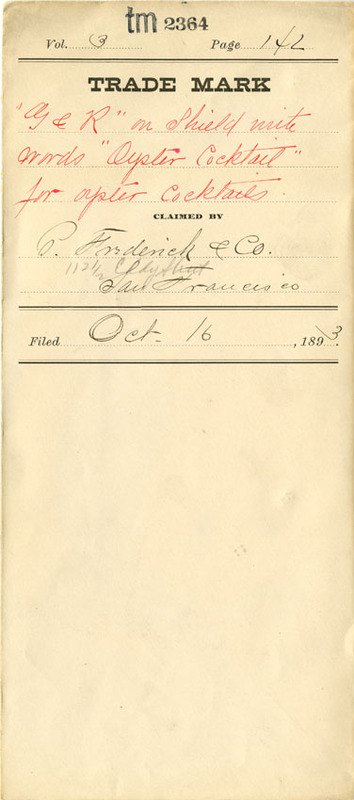 tm 2364
Vol. 3 Page 142
TRADE MARK
"G & R" on Shield with
words "Oyster Cocktail"
for oyster Cocktails.
CLAIMED BY
P. Frederick & Co.
112 1/2 Eddy Street
San Francisco
Filed Oct. 16, 1893.